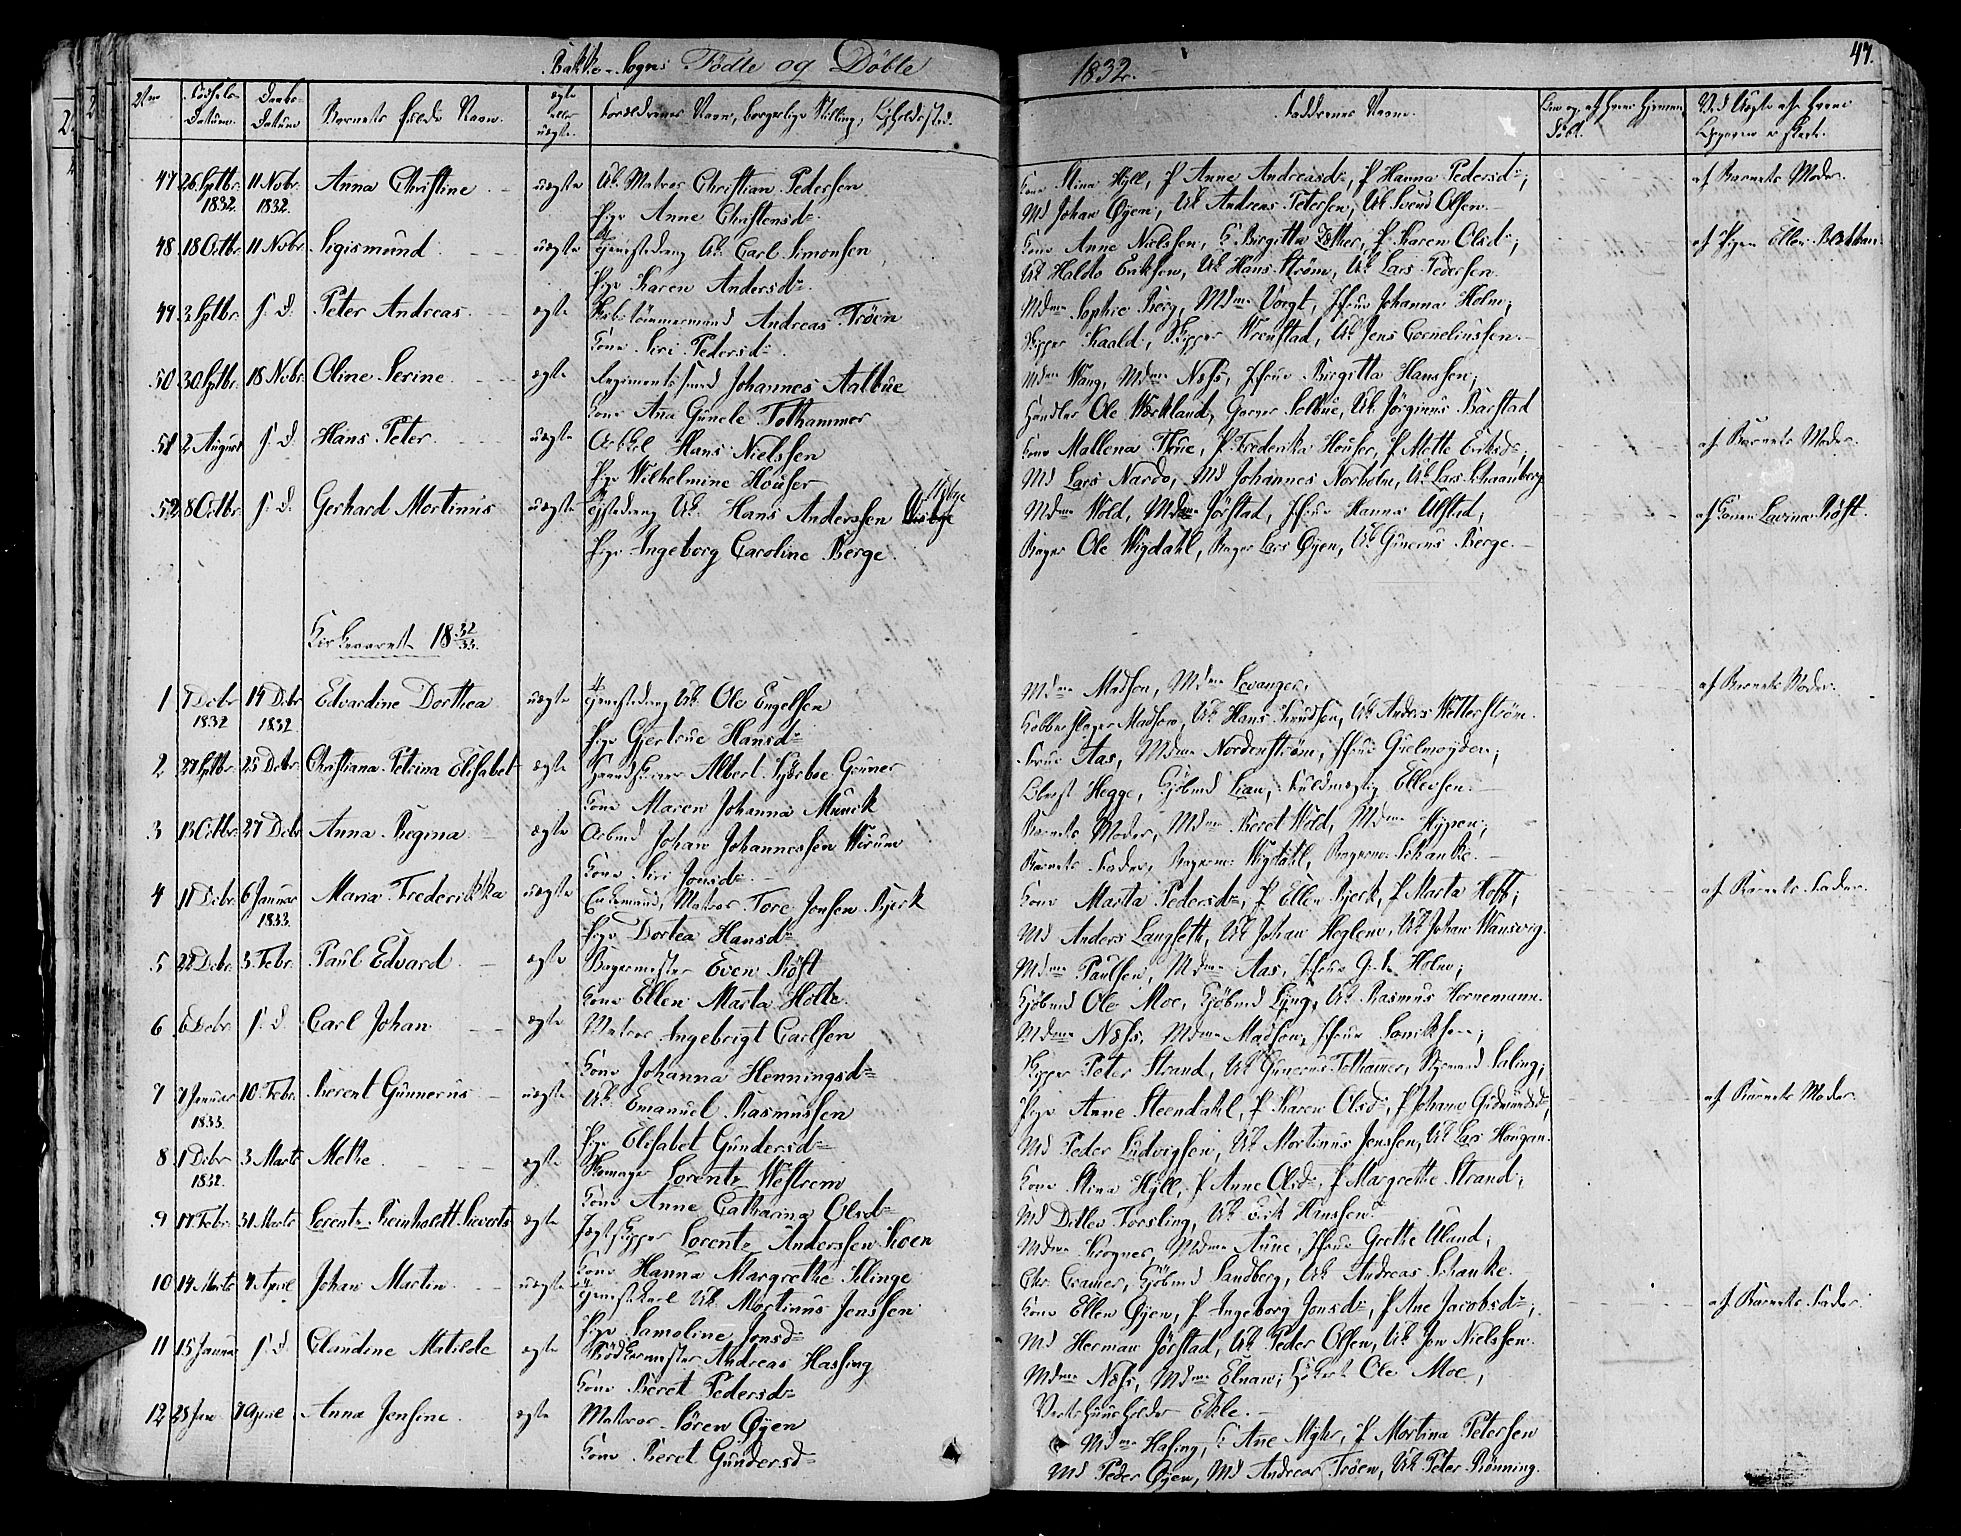 Bakke-Sogns Födte og Döbte 1832. 47.
Födsels-Datum. Daabs-Datum Barnets fulde Navn. ægte eller uægte. Forældrenes Navn, borgerlige Stilling, Opholdssted. Faddernes Navne.
47 26 Sptbr. 1832. 11 Novbr. 1832. Anna Christine uægte Uk. Matros Christian Pedersen
Pige Anne Christensdr.
Kone Stina Hÿll, P Anne Andreasdr, P Hanna Pedersdr;
Md Johan Öyen, Uk Andreas Petersen, Uk Svend Olsen.
af Barnets Moder.
48 18 Octbr. 11 Novbr. Segismund uægte Tjenestedreng Uk. Carl Simonsen
Pige Karen Andersdr.
Kone Anne Nielsen, K. Birgitta, P Karen Olsdr;
Uk Haldo Eriksen, Uk Hans Ström, Uk Lars Pedersen.
af Pigen Ellen Bakken.
49 3 Sptbr. s. d. Peter Andreas ægte Skibstömmermand Andreas Tröen
Kone Siri Pedersdr.
Mdme Sophie Berg, Mdme Vogt, Jfrue Johanna Holm;
Skipper Kaald, Skipper Wrenstad, Uk Jens Corneliussen.
50 30 Sptbr. 18 Novbr. Oline Serine ægte Johannes Aalbue
Kone Ana Gunele Tothammer
Mdme Wang, Mdme Næss, Jfrue Birgitta Hanssen;
Handler Ole Werkland, Garver Solbue, Uk Jörginus Barstad
51 2 August s. d. Hans Peter uægte Hans Nielsen
Pige Wilhelmine Houser
Kone Mallena Thue, P. Frederika Houser, P Mette Eriksdr;
Md Lars Nardo, Md Johannes Norholm, Uk Lars Schaanberg
af Barnets Moder.
52 8 Octbr. s. d. Gerhard Mortinus uægte Tjenestedreng Uk. Hans Anderssen
Pige Ingeborg Caroline Berge.
Mdme Wold, Mdme Jörstad, Jfrue Hanna Ulstad;
Bager Ole Wigdahl, Bager Lars Öyen, Uk Gunerus Berge.
af Konen Lavina Röst.
Kirkeaaret 18 32/33.
1 7 Debr 1832 14 Debr 1832. Edvardine Dorthea uægte Tjenestedreng Uk Ole Engelsen
Pige Gjertrue Hansdr
Mdme Madsen, Mdme Levanger,
Kobberslager Madsen, Uk Hans Knudsen, Uk Anders Wetterström.
af Barnets Moder.
2 27 Sptbr. 25 Debr. Christiana Petrina Elisabet ægte Albert Gruner
Kone Maren Johanna Munck
Frue Aas, Mdme Nordenström, Jfrue Quelmeyden;
Obrist Hegge, Kjöbmd Lian, Fuldmægtig Ellevsen.
3 13 Octbr. 27 Debr. Anna Regina ægte Arbmd Johan Johannessen Wirum
Kone Siri Jonsdr.
Barnets Moder, Mdme Beret Wold, Mdme Hypen;
Barnets Fader, Bagerm. Wigdahl, Bagerm. Schanke.
4 11 Debr. 6 Januar 1833. Maria Frederikka uægte Enkemand, Matros Tore Jonsen Bjerk
Pige Dortea Hansdr
Kone Marta Pedersdr, P Ellen Bjerk, P Marta Hoff;
Md Anders Langseth, Uk Johan Heglem, Uk Johan Wansvig.
af Barnets Fader.
5 22 Debr. 3 Febr. Paul Edvard ægte Bagermester Even Röst
Kone Ellen Marta Holte.
Mdme Paulsen, Mdme Aas, Jfrue Holm;
Kjöbmd Ole Moe, Kjöbmd Lyng, Uk Rasmus Hornemann.
6 6 Debr. s. d. Carl Johan ægte Matros Ingebrigt Carlsen
Kone Johanna Henningsdr
Mdme Næss, Mdme Madsen, Jfrue;
Skipper Peter Strand, Uk Gunerus Tothamer, Styrmand Saling;
7 7 Januar 1833. 10 Febr. Berent Gunnerus uægte Uk. Emanuel Rasmussen
Pige Elisabet Gundersdr
Pige Anne Steendahl, P Karen Olsdr, P Johana Gudmundsdr,
Md Peder Ludvigsen, Uk Mortinus Jenssen, Uk Lars Hougan.
af Barnets Moder.
8 1 Debr 1832. 3 Marts Methe ægte Skomager Lorentz Westrem
Kone Anne Catharina Olsdr
Kone Stina Hÿll, P Anne Olsdr, P Margrethe Strand;
Md Detlev Forsling, Uk Erik Hanssen.
9 17 Febr. 31 Marts Lorentz Reinholdt Sivertz ægte Jagtskipper Lorentz Anderssen Koen
Kone Hanna Margrethe Klinge
Mdme Krogner, Mdme Aune, Jfrue Grethe Uland;
Chr. Cramer, Kjöbmd Sandberg, Uk Andreas Schanke.
10 14 Marts 4 April Johan Martin uægte Tjenestekarl Uk. Mortinus Jenssen
Pige Samoline Jonsdr
Kone Ellen Öyen, P Ingeborg Jonsdr, P Ane Jacobsdr;
Md Herman Jörstad, Uk Peder Olsen, Uk Jon Nielsen.
af Barnets Fader.
11 15 Januar s. d. Claudine Matilde ægte Bödkermester Andreas Hassing
Kone Beret Pedersdr
Mdme Næss, Mdme Elnaw; Ole Moe,
Vertshuusholder Ekle.
12 28 Jan 7 April Anna Jensine ægte Matros Sören Öyen
Kone Beret Gundersdr
Mdme Hasing, K Ane Myhr, P Mortina Petersen
Md Peder Öyen, Md Andreas Tröen, Uk Peter Rönning.